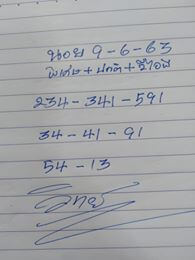 นอย 9-6-63
พิเศษ + ปกติ + วีไอพี
234-341-591
34-41-91
54-13